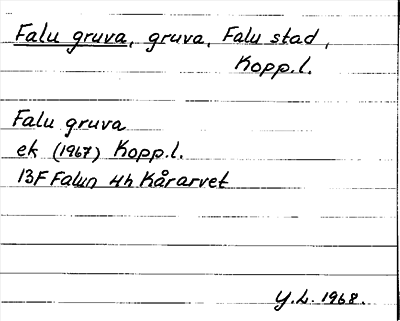 Falu gruva, gruva, Falu stad,
Kopp.l.
Falu gruva
ek (1967) Kopp.l.
13F Falun 4h Kårarvet
Y.L. 1968.